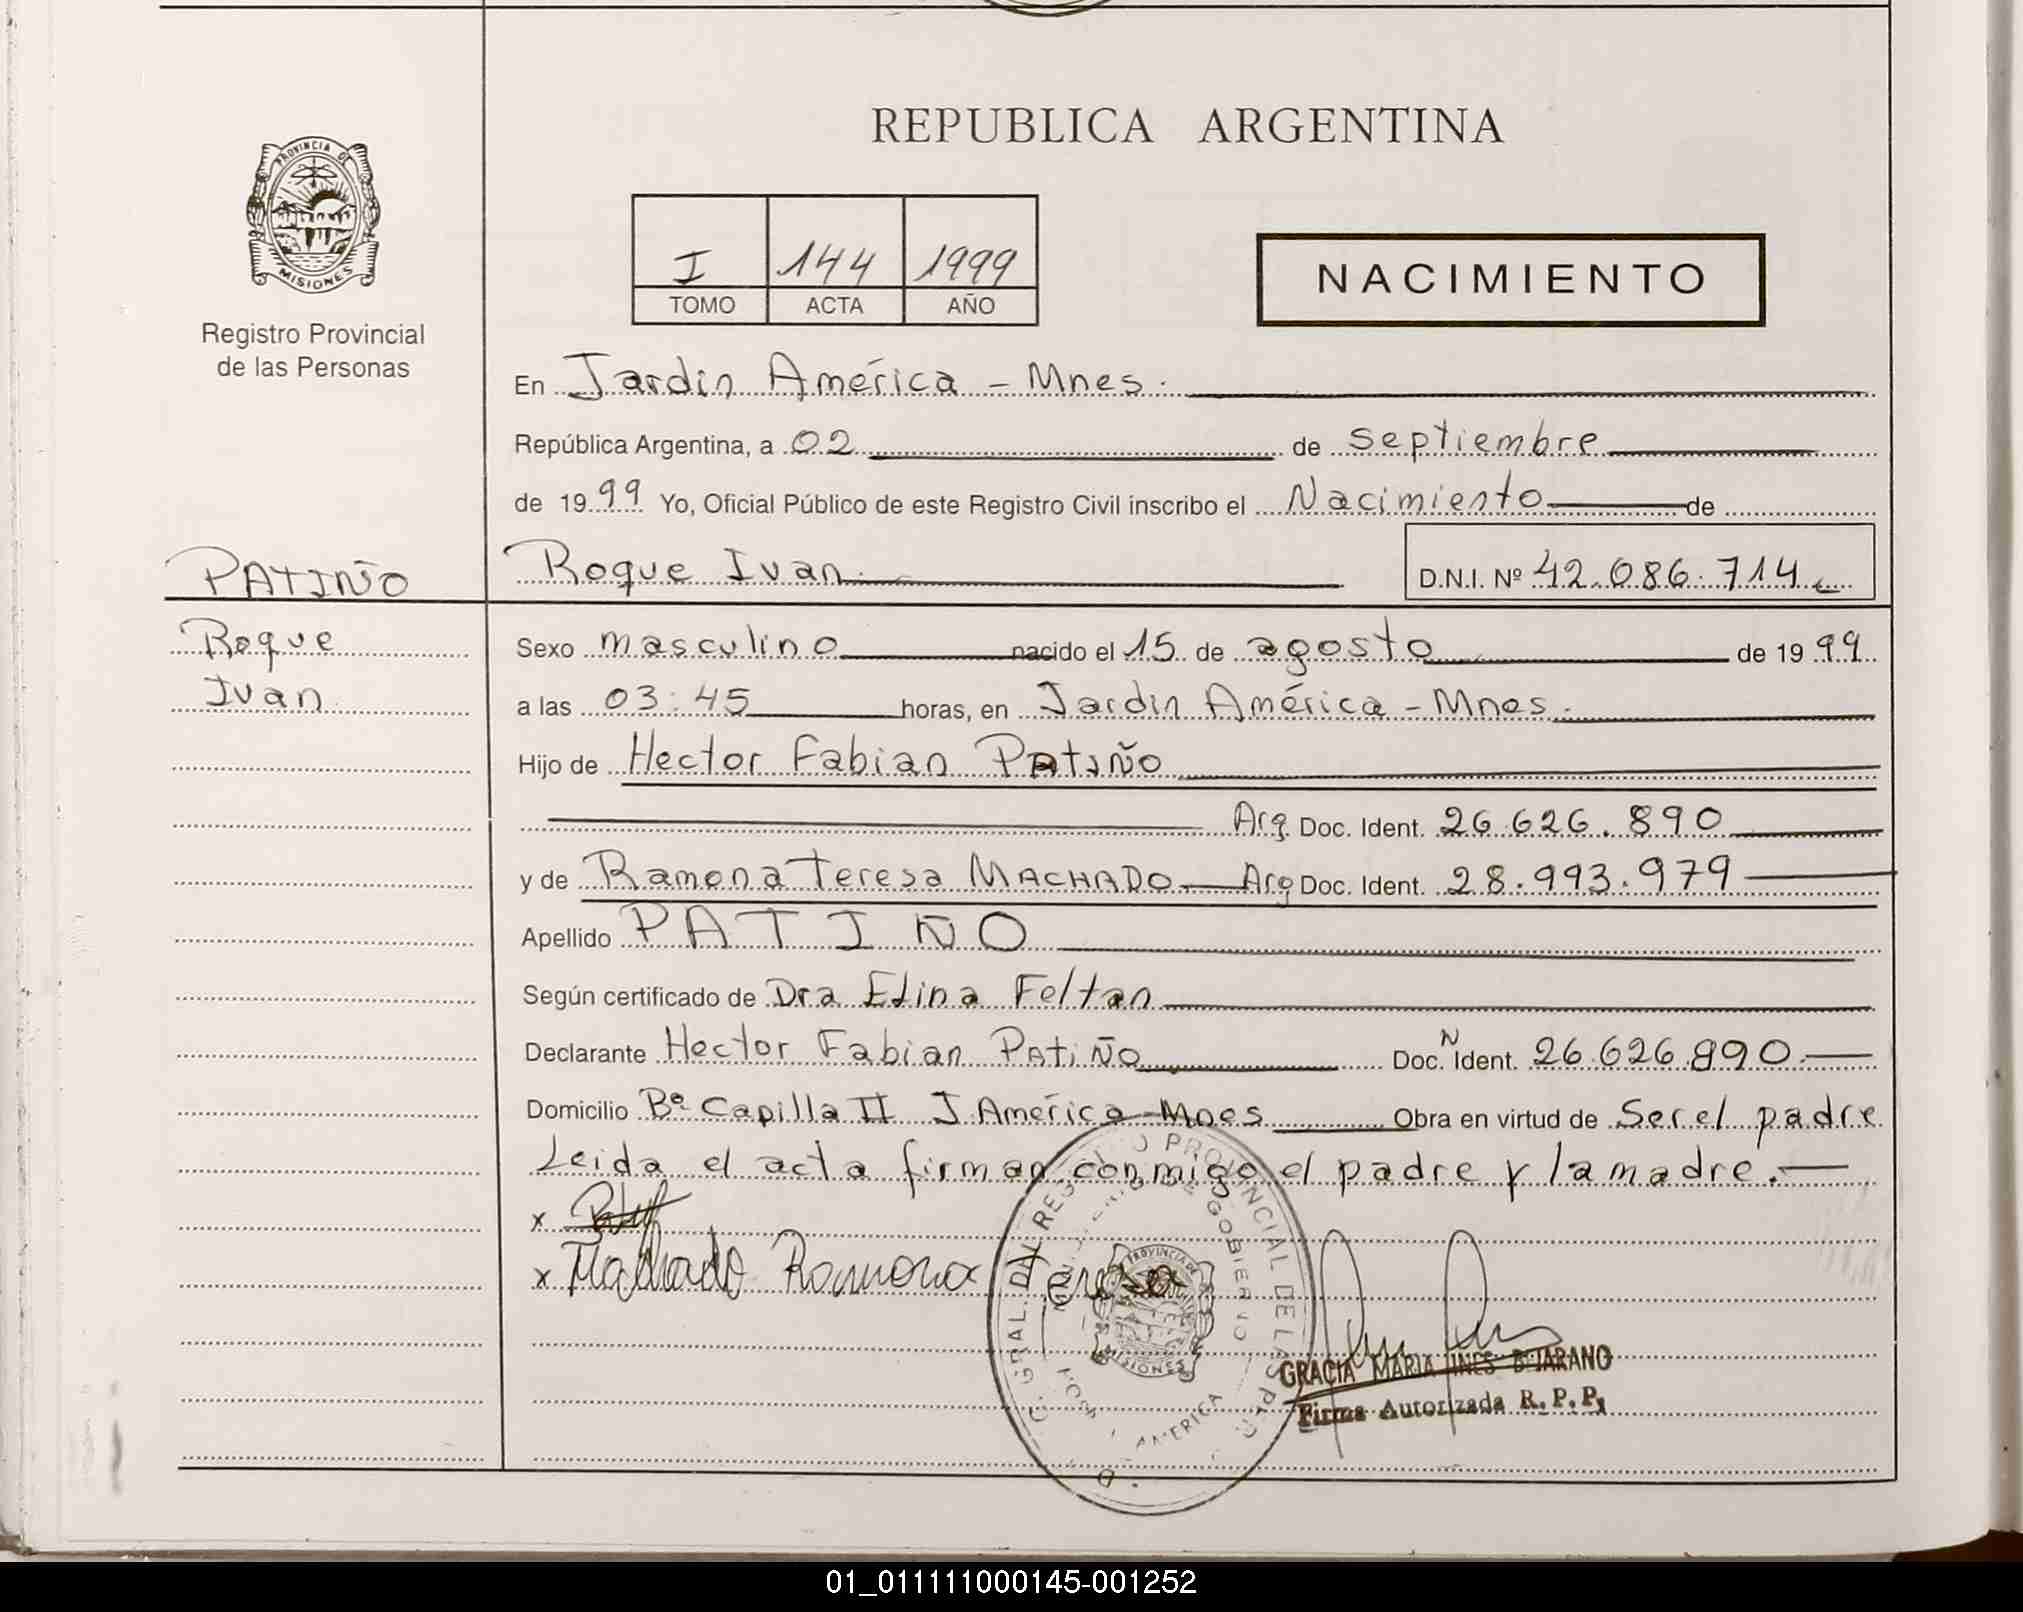 REPUBLICA ARGENTINA
PROVINCIA DE
MISIONES
Registro Provincial
de las Personas
I 144 1999
TOMO ACTA AÑO
NACIMIENTO
En Jardin América - Mnes.
República Argentina, a 02 de septiembre
de 1999 Yo, Oficial Público de este Registro Civil inscribo el Nacimiento de
PATIÑO
Roque Ivan D.N.I. Nº 42.086.714
Roque
Ivan
Sexo masculino nacido el 15 de agosto de 1999
a las 03:45 horas, en Jardin América - Mnes.
Hijo de Hector Fabian Patiño
Arg. Doc. Ident. 26.626.890
y de Ramona Teresa MACHADO Arg Doc. Ident. 28.993.979
Apellido PATIÑO
Según certificado de Dra Elina Feltan
Declarante Hector Fabian Patiño Doc. N Ident. 26.626.890
Domicilio Bº Capilla II J. América - Mnes Obra en virtud de Ser el padre
Leida el acta firman conmigo el padre y la madre.
x
x Machado Ramona Teresa
PROVINCIAL DE LAS
GOBIERNO
PROVINCIA DE
MISIONES
AMERICA
GRACIA MARIA INES BEJARANO
Firma Autorizada R.P.P.
01_011111000145-001252